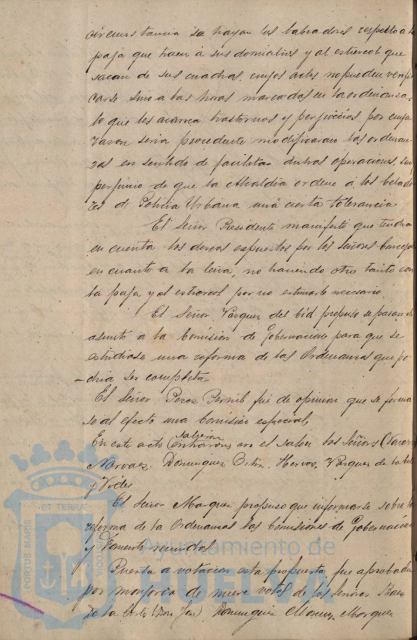 circunstancia se hayan los labradores respecto a la
paja que traen á sus domicilios y al estiercol que
sacan de sus cuadras, cuyos actos no pueden verifi
carse sino a las horas marcadas en la ordenanza,
lo que les acarrea trastornos y perjuicios, por cuya
razon seria procedente modificaran las ordenan-
zas en sentido de facilitar dichas operaciones, sin
perjuicio de que la Alcaldia ordene á los celado
res de Policia Urbana una cierta tolerancia
El Señor Presidente manifestó que tendra
en cuenta los deseos expuestos por los Señores Concejales
en cuanto a la leña, no haciendo otro tanto con
la paja y el estiercol por no estimarlo necesario
El Señor Vazquez del Cid propuso se pasara el
asunto a la Comision de Gobernacion para que se
estudiase una reforma de las Ordenanzas que po
dria ser completa
El Señor Perez fué de opinar que se forma
se al efecto una Comision especial,
En este acto salieron del Salon los Señores
Narvaez, Dominguez Ortiz, Vazquez de la
y Vides
El Señor Marquez propuso que informase sobre la
reforma de la Ordenanza las Comisiones de Gobernacion
y Fomento reunidas
Puesta a votacion esta propuesta fue aprobada
por mayoria de nueve votos de los Señores
de la Corte Dominguez Marquez
PORTUS MARIS ET TERRAE CUSTODIA
Ayuntamiento de
HUELVA